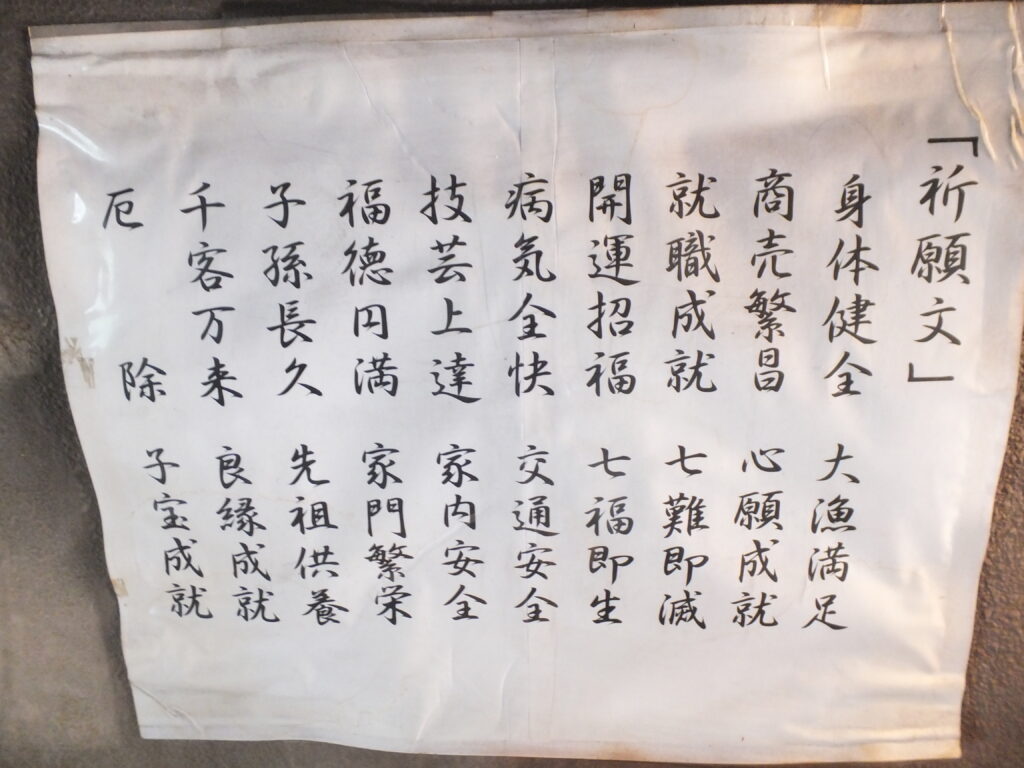 「祈願文」
身体健全 大漁満足
商売繁昌 心願成就
就職成就 七難即滅
開運招福 七福即生
病気全快 交通安全
技芸上達 家内安全
福徳円満 家門繁栄
子孫長久 先祖供養
千客万来 良縁成就
厄除 子宝成就